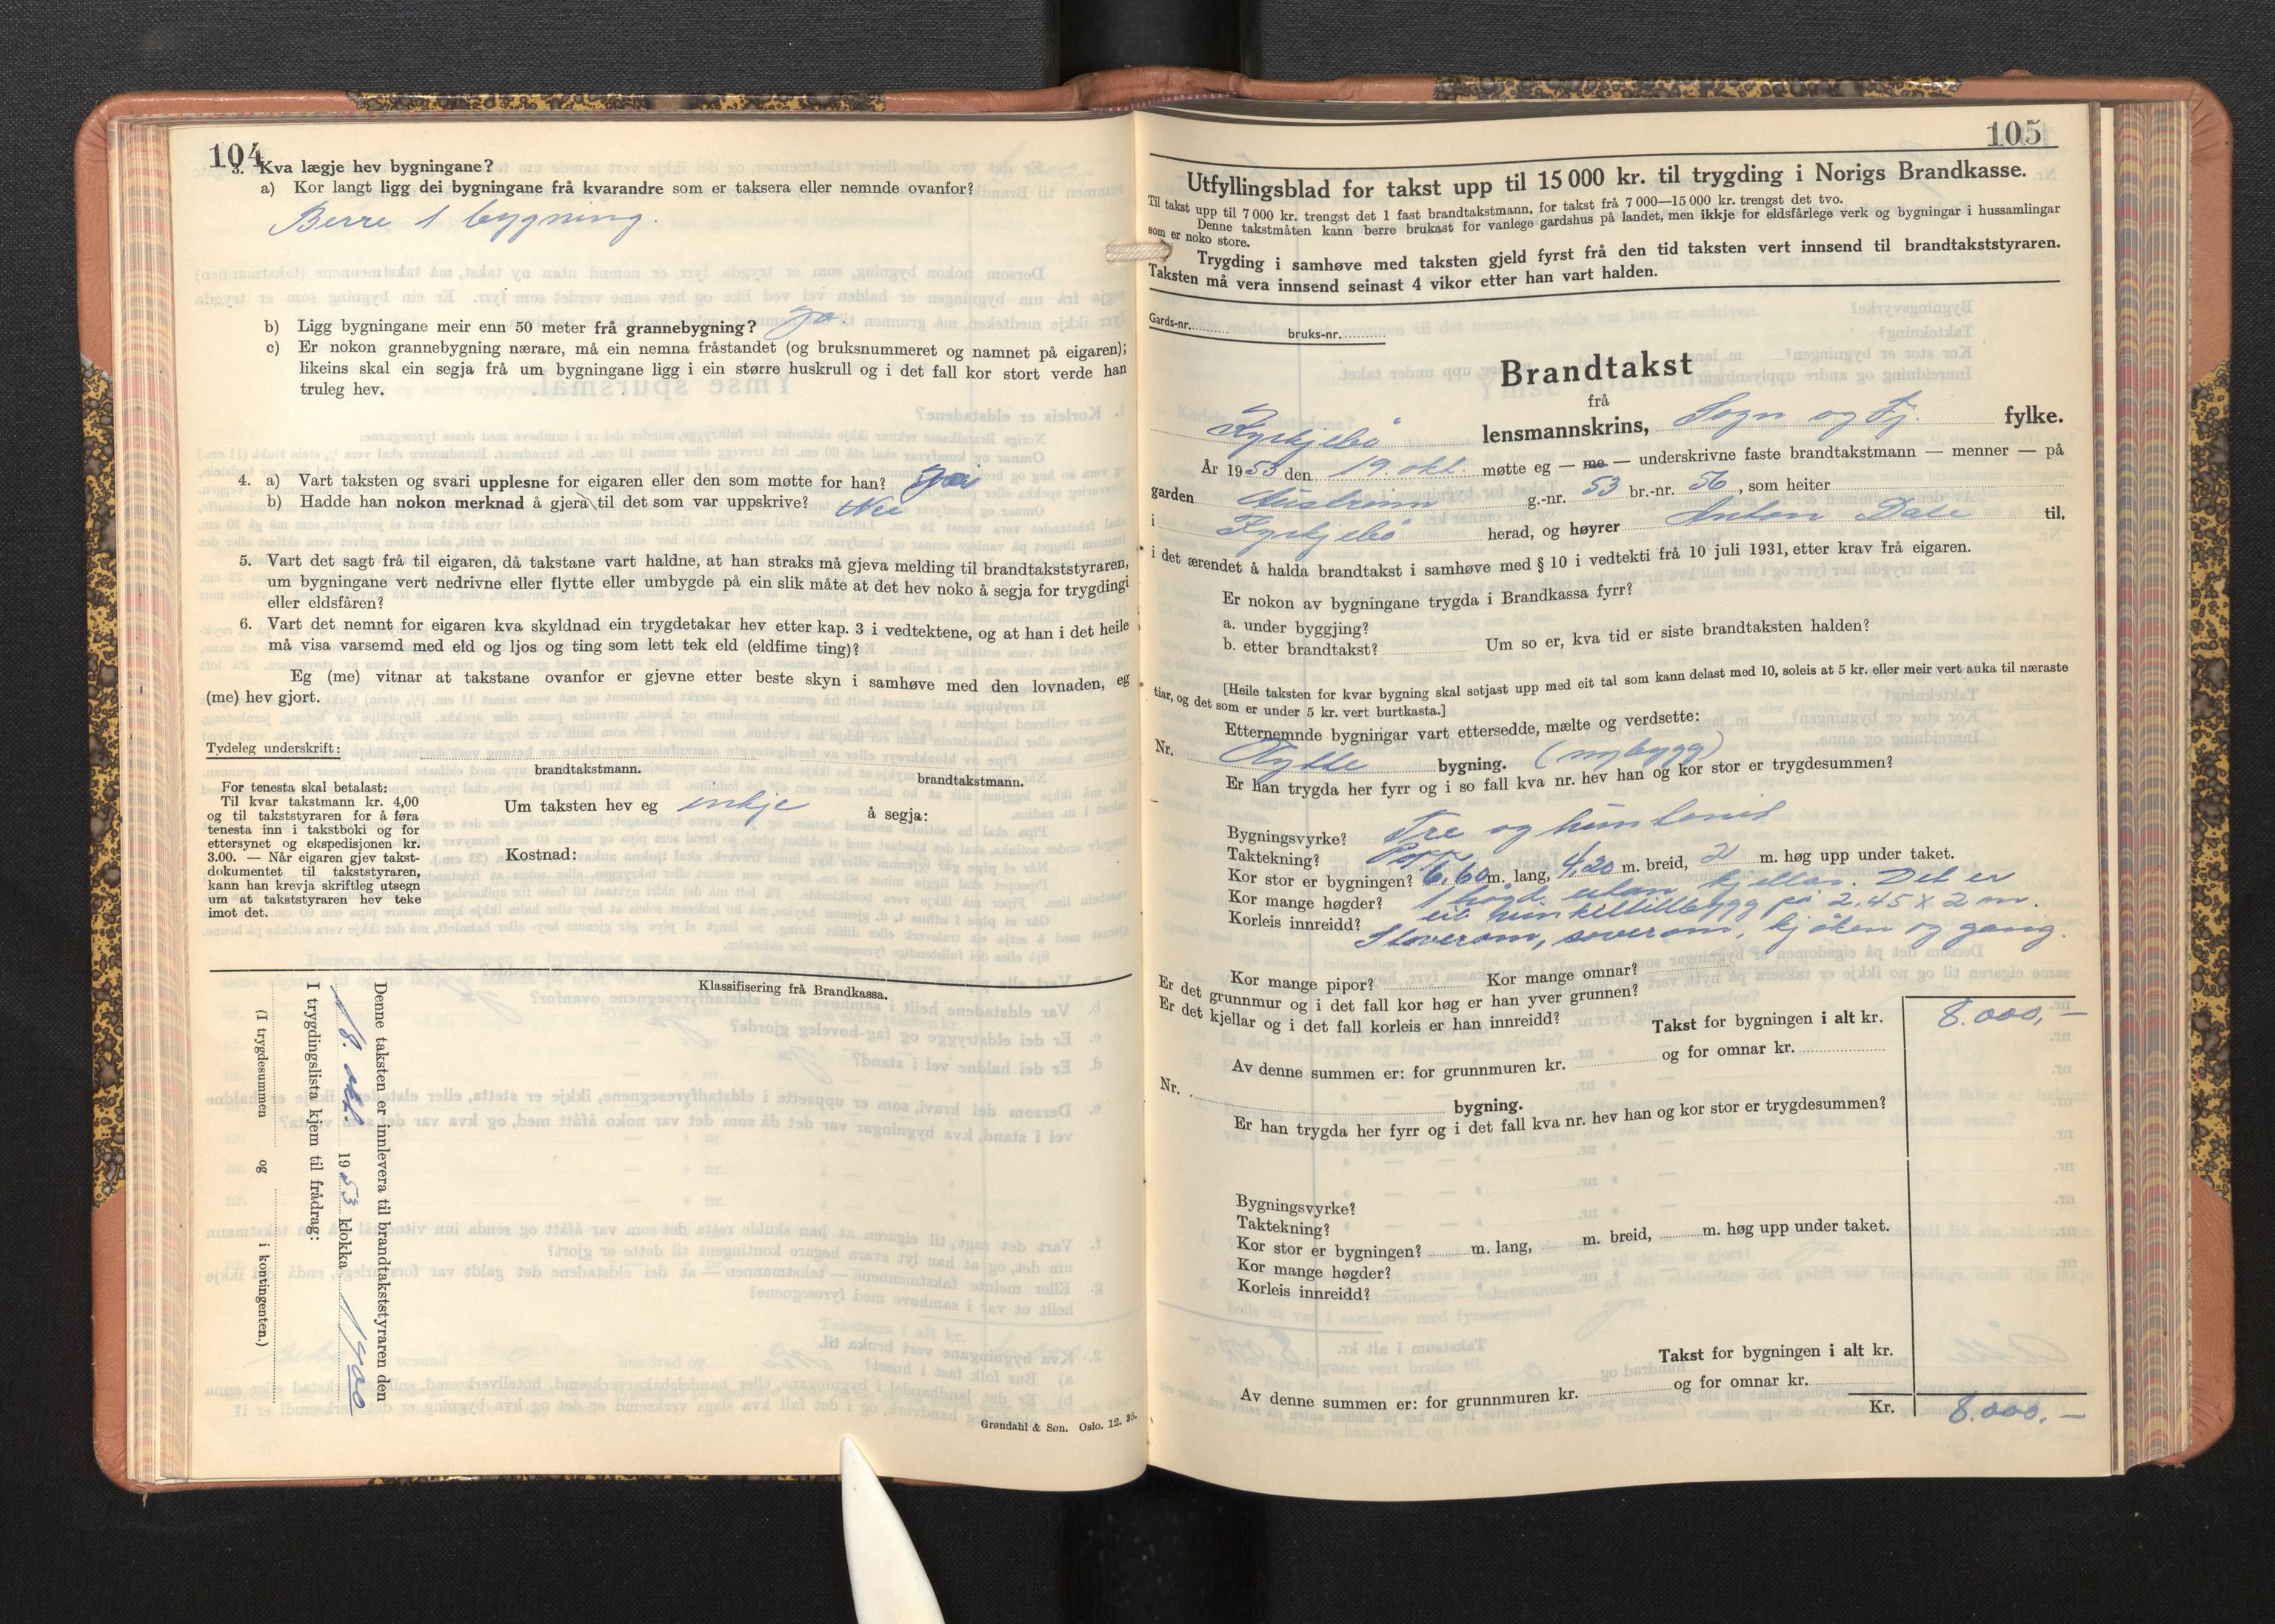 104
3. Kva lægje hev bygningane?
a) Kor langt ligg dei bygningane frå kvarandre som er taksera eller nemnde ovanfor?
Berre 1 bygning.
b) Ligg bygningane meir enn 50 meter frå grannebygning? ja.
c) Er nokon grannebygning nærare, må ein nemna fråstandet (og bruksnummeret og namnet på eigaren);
likeins skal ein segja frå um bygningane ligg i ein større huskrull og i det fall kor stort verde han
truleg hev.
4. a) Vart taksten og svari upplesne for eigaren eller den som møtte for han? ja
b) Hadde han nokon merknad å gjera til det som var uppskrive? Nei
5. Vart det sagt frå til eigaren, då takstane vart haldne, at han straks må gjeva melding til brandtakststyraren,
um bygningane vert nedrivne eller flytte eller umbygde på ein slik måte at det hev noko å segja for trygdingi
eller eldsfåren?
6. Vart det nemnt for eigaren kva skyldnad ein trygdetakar hev etter kap. 3 i vedtektene, og at han i det heile
må visa varsemd med eld og ljos og ting som lett tek eld (eldfime ting)?
Eg (me) vitnar at takstane ovanfor er gjevne etter beste skyn i samhøve med den lovnaden, eg
(me) hev gjort.
Tydeleg underskrift:
brandtakstmann. brandtakstmann.
For tenesta skal betalast:
Til kvar takstmann kr. 4,00
og til takststyraren for å føra
tenesta inn i takstboki og for
ettersynet og ekspedisjonen kr.
3.00. — Når eigaren gjev takst-
dokumentet til takststyraren,
kann han krevja skriftleg utsegn
um at takststyraren hev teke
imot det.
Um taksten hev eg inkje å segja:
Kostnad:
Klassifisering frå Brandkassa.
Denne taksten er innlevera til brandtakststyraren den
18. okt. 1953 klokka 1700
I trygdingslista kjem til frådrag:
(I trygdesummen og i kontingenten.)
Grøndahl & Søn. Oslo. 12. 35.
105
Utfyllingsblad for takst upp til 15 000 kr. til trygding i Norigs Brandkasse.
Til takst upp til 7 000 kr. trengst det 1 fast brandtakstmann, for takst frå 7 000—15 000 kr. trengst det tvo.
Denne takstmåten kann berre brukast for vanlege gardshus på landet, men ikkje for eldsfårlege verk og bygningar i hussamlingar
som er noko store.
Trygding i samhøve med taksten gjeld fyrst frå den tid taksten vert innsend til brandtakststyraren.
Taksten må vera innsend seinast 4 vikor etter han vart halden.
Gards-nr. bruks-nr.
Brandtakst
frå
Kyrkjebø lensmannskrins, Sogn og Fj. fylke.
År 1953 den 19. okt. møtte eg — me — underskrivne faste brandtakstmann — menner — på
garden Austreim g.-nr. 53 br.-nr. 56, som heiter
i Kyrkjebø herad, og høyrer Anton Dale til,
i det ærendet å halda brandtakst i samhøve med § 10 i vedtekti frå 10 juli 1931, etter krav frå eigaren.
Er nokon av bygningane trygda i Brandkassa fyrr?
a. under byggjing?
b. etter brandtakst? Um so er, kva tid er siste brandtaksten halden?
[Heile taksten for kvar bygning skal setjast upp med eit tal som kann delast med 10, soleis at 5 kr. eller meir vert auka til næraste
tiar, og det som er under 5 kr. vert burtkasta.]
Etternemnde bygningar vart ettersedde, mælte og verdsette:
Nr. Hytte bygning. (nybygg)
Er han trygda her fyrr og i so fall kva nr. hev han og kor stor er trygdesummen?
Bygningsvyrke? Tre og
Taktekning? Papp
Kor stor er bygningen? 6,60 m. lang, 4,20 m. breid, 2 m. høg upp under taket.
Kor mange høgder? 1 høgd utan kjellar. Det er
Korleis innreidd? eit vinkeltillbygg på 2,45 x 2 m.
Stoverom, soverom, kjøken og gang.
Kor mange pipor? Kor mange omnar?
Er det grunnmur og i det fall kor høg er han yver grunnen?
Er det kjellar og i det fall korleis er han innreidd?
Takst for bygningen i alt kr. 8.000,—
Av denne summen er: for grunnmuren kr. og for omnar kr.
Nr. bygning.
Er han trygda her fyrr og i det fall kva nr. hev han og kor stor er trygdesummen?
Bygningsvyrke?
Taktekning?
Kor stor er bygningen? m. lang, m. breid, m. høg upp under taket.
Kor mange høgder?
Korleis innreidd?
Takst for bygningen i alt kr.
Av denne summen er: for grunnmuren kr. og for omnar kr.
Kr. 8.000,—